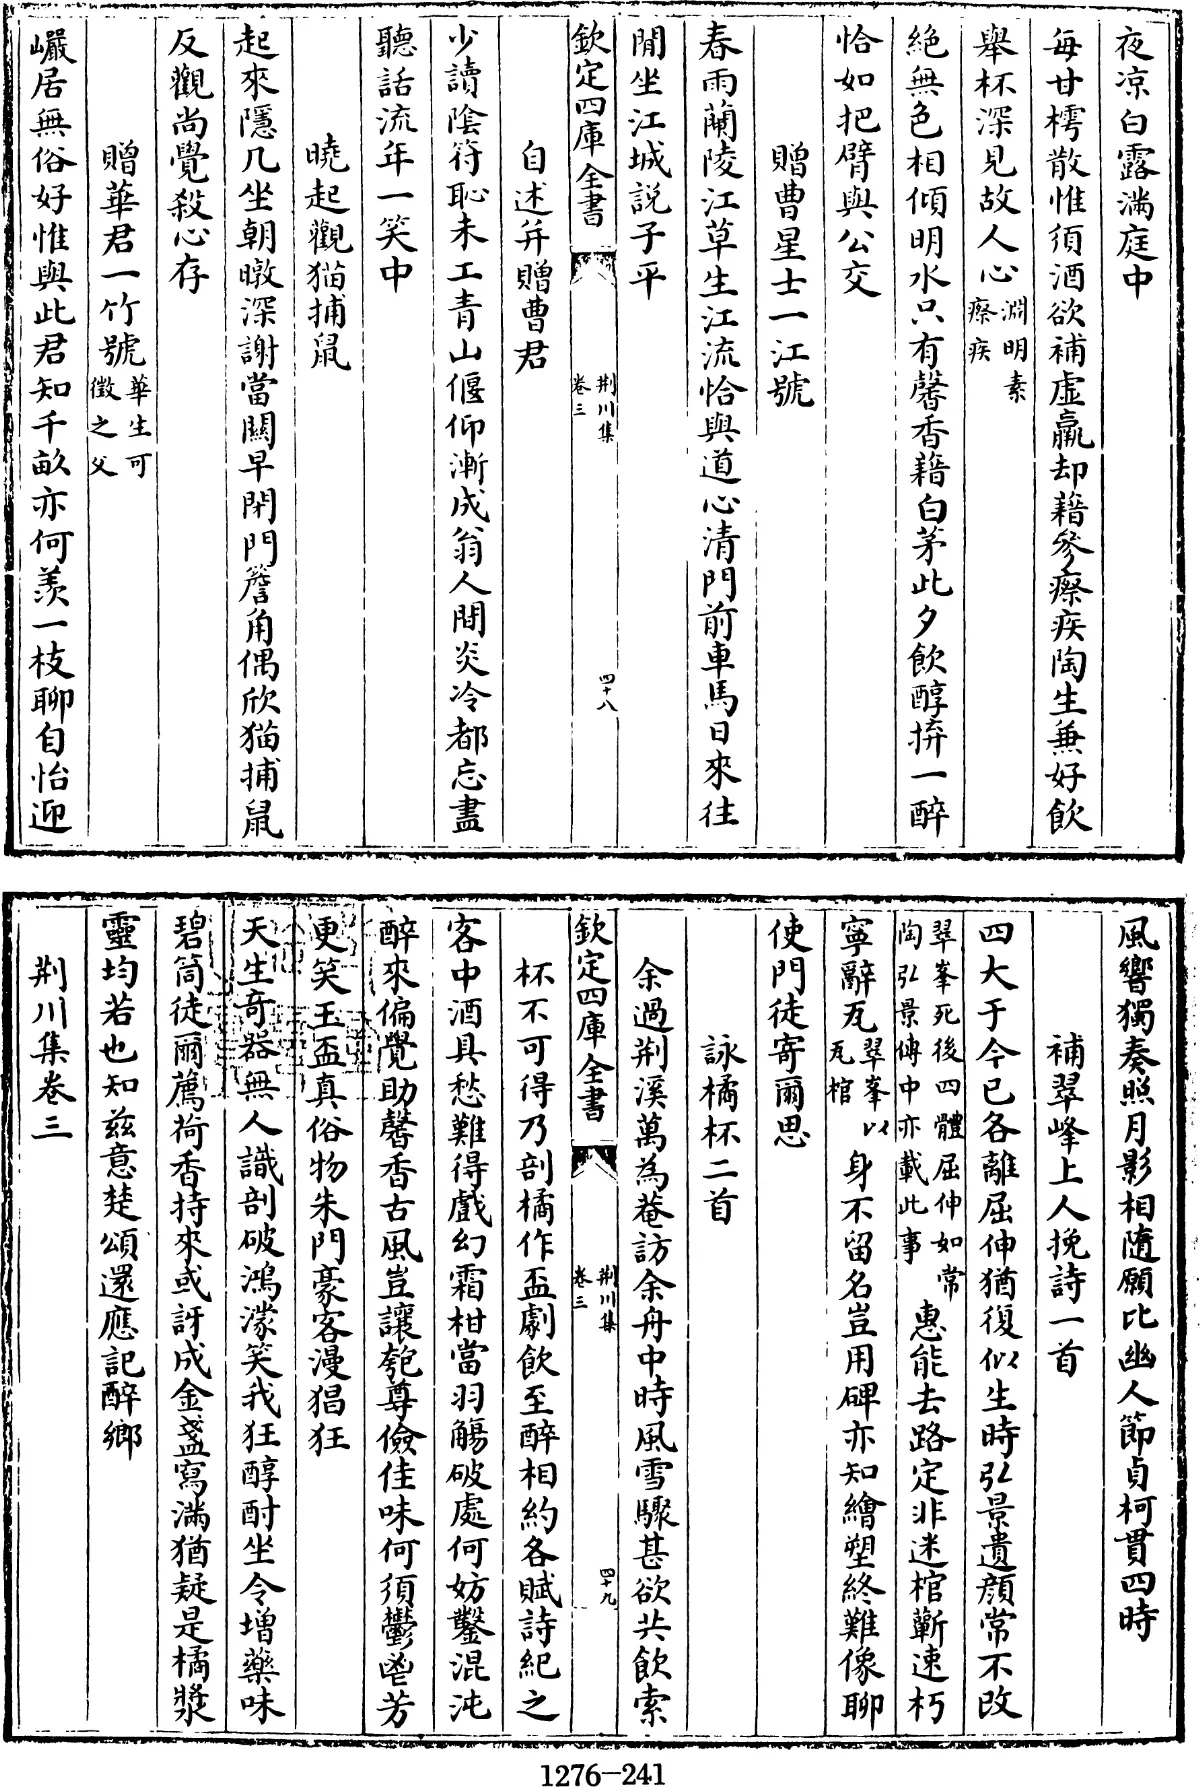 夜凉白露満庭中
每甘樗散惟須酒欲補虛羸却藉參瘵疾陶生兼好飲
舉杯深見故人心淵明素瘵疾
絶無色相傾明水只有馨香藉白茅此夕飲醇拚一醉
恰如把臂與公交
贈曹星士一江號
春雨蘭陵江草生江流恰與道心清門前車馬日來往
閒坐江城説子平
欽定四庫全書
荆川集
卷三
四十八
自述并贈曹君
少讀陰符恥未工青山偃仰漸成翁人間炎冷都忘盡
聽話流年一笑中
曉起觀猫捕鼠
起來隱几坐朝暾深謝當關早閉門簷角偶欣猫捕鼠
反觀尚覺殺心存
贈華君一竹號華生可徵之父
巖居無俗好惟與此君知千畝亦何羨一枝聊自怡迎
風響獨奏照月影相隨願比幽人節貞柯貫四時
補翠峰上人挽詩一首
四大于今已各離屈伸猶復似生時弘景遺顔常不改
翠峯死後四體屈伸如常陶弘景傳中亦載此事惠能去路定非迷棺蘄速朽
寧辭瓦翠峯以瓦棺身不留名豈用碑亦知繪塑終難像聊
使門徒寄爾思
詠橘杯二首
余過荆溪萬為菴訪余舟中時風雪驟甚欲共飲索
欽定四庫全書
荆川集
卷三
四十九
杯不可得乃剖橘作盃劇飲至醉相約各賦詩紀之
客中酒具愁難得戲幻霜柑當羽觴破處何妨鑿混沌
醉來偏覺助馨香古風豈讓匏尊儉佳味何須鬱鬯芳
更笑玉盃真俗物朱門豪客漫猖狂
天生奇器無人識剖破鴻濛笑我狂醇酎坐令增藥味
碧筒徒爾薦荷香持來或訝成金盞寫滿猶疑是橘漿
靈均若也知兹意楚頌還應記醉鄉
荆川集卷三
1276-241